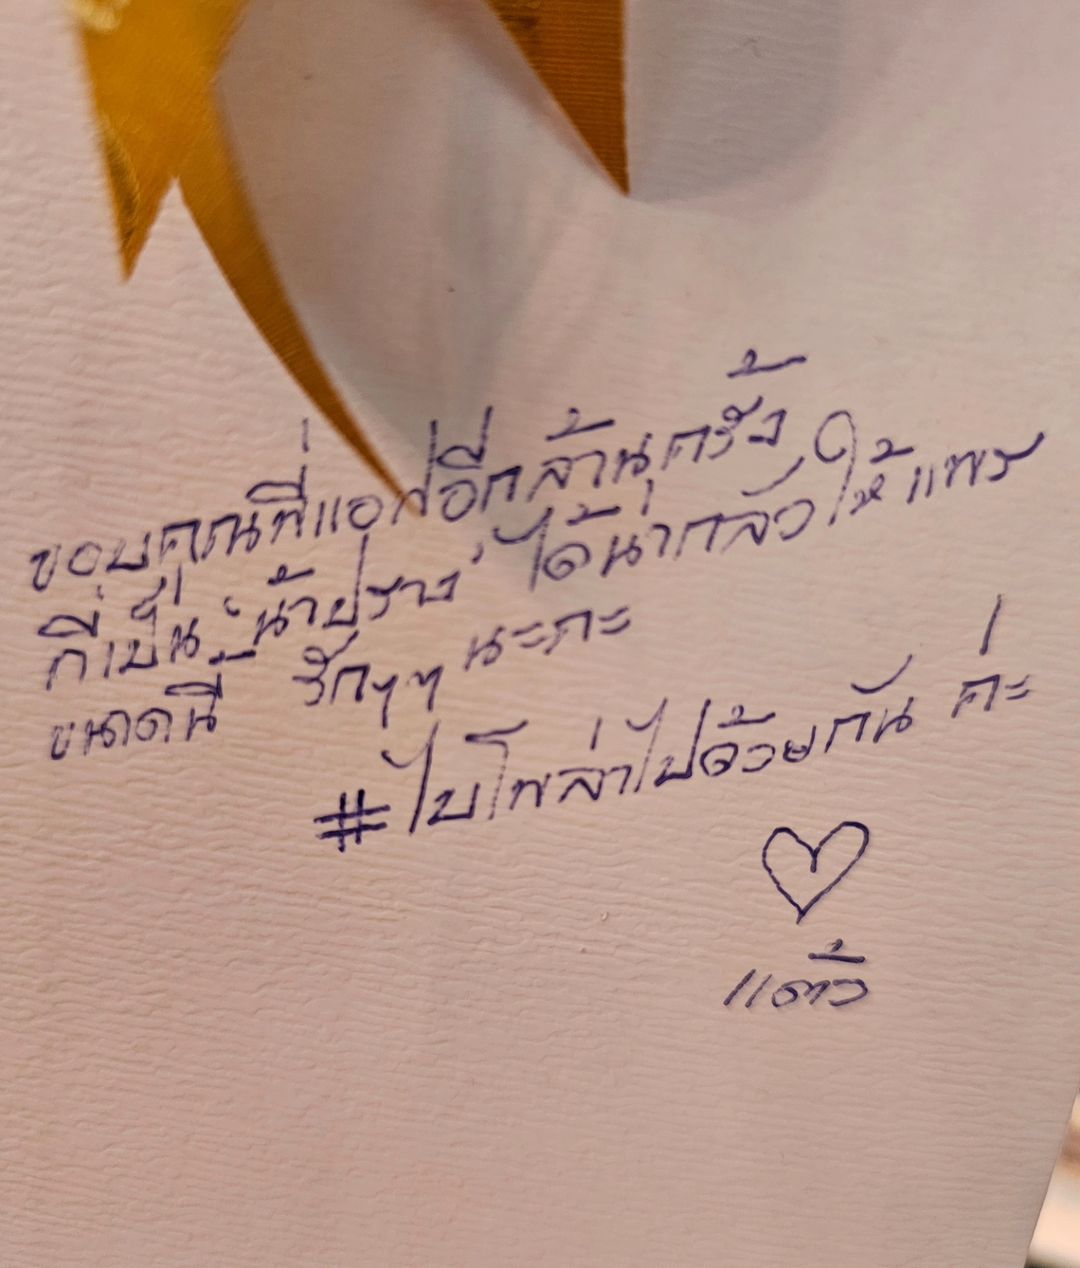 ขอบคุณพี่แอ๋วอีกล้านครั้ง
ที่เป็น "น้าปราง" ได้น่ากลัวให้แพร
ขนาดนี้ รักๆๆ นะคะ
#ไบโพล่าไปด้วยกัน ค่ะ
แต้ว